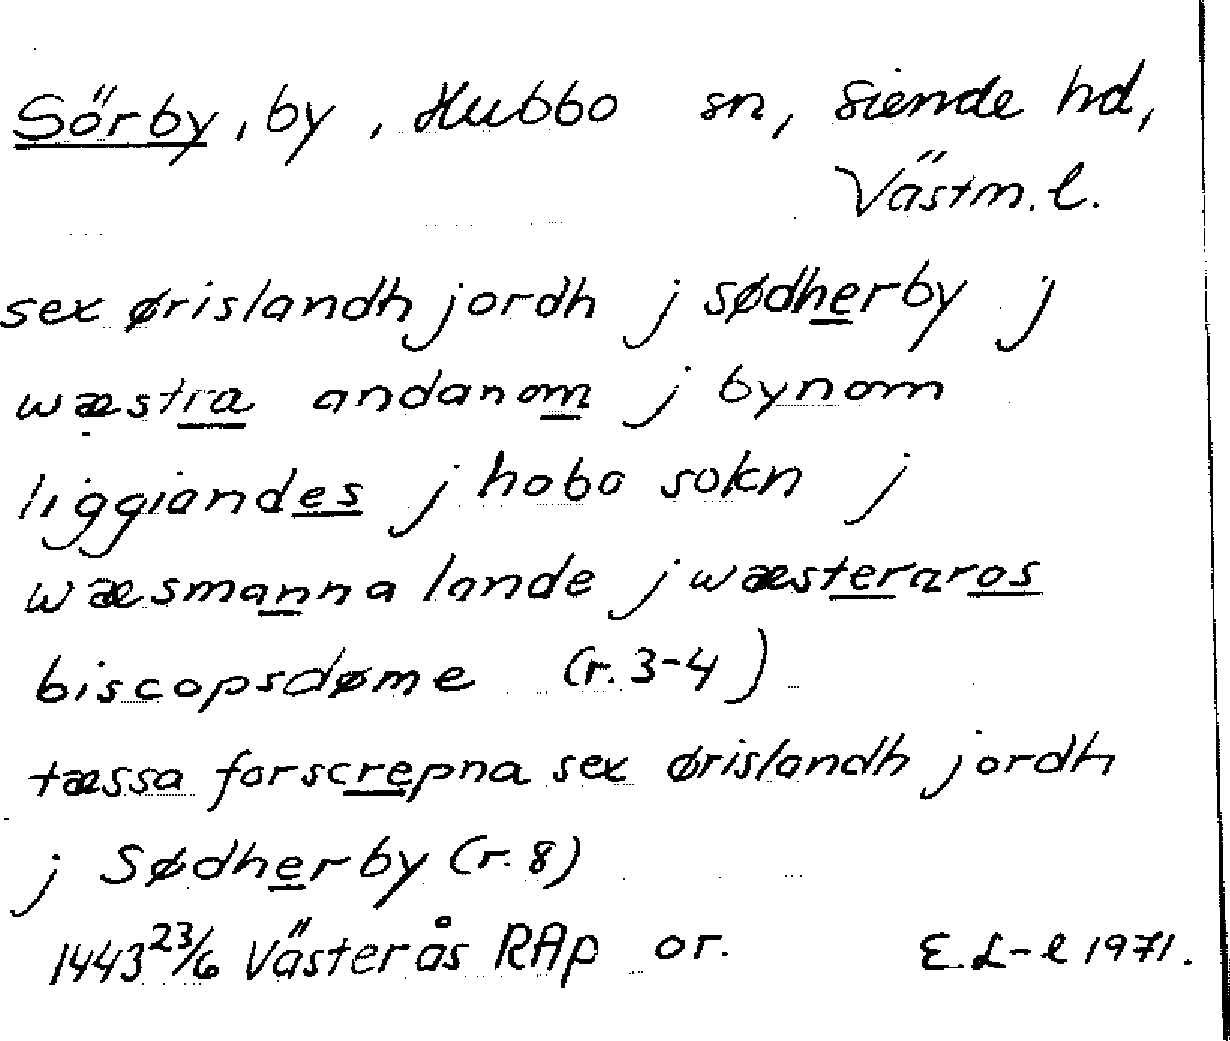 Sörby, by, Hubbo sn, Siende hd,
Västm. l.
sex ørislandh jordh j sødherby j
wæstra andanom j bynom
liggiandes j hobo sokn j
wæsmanna lande j wæsteraros
biscopsdøme (r. 3-4)
tæssa forscrepna sex ørislandh jordh
j Sødherby (r. 8)
1443 23/6 Västerås RAp or. E. L-l 1971.